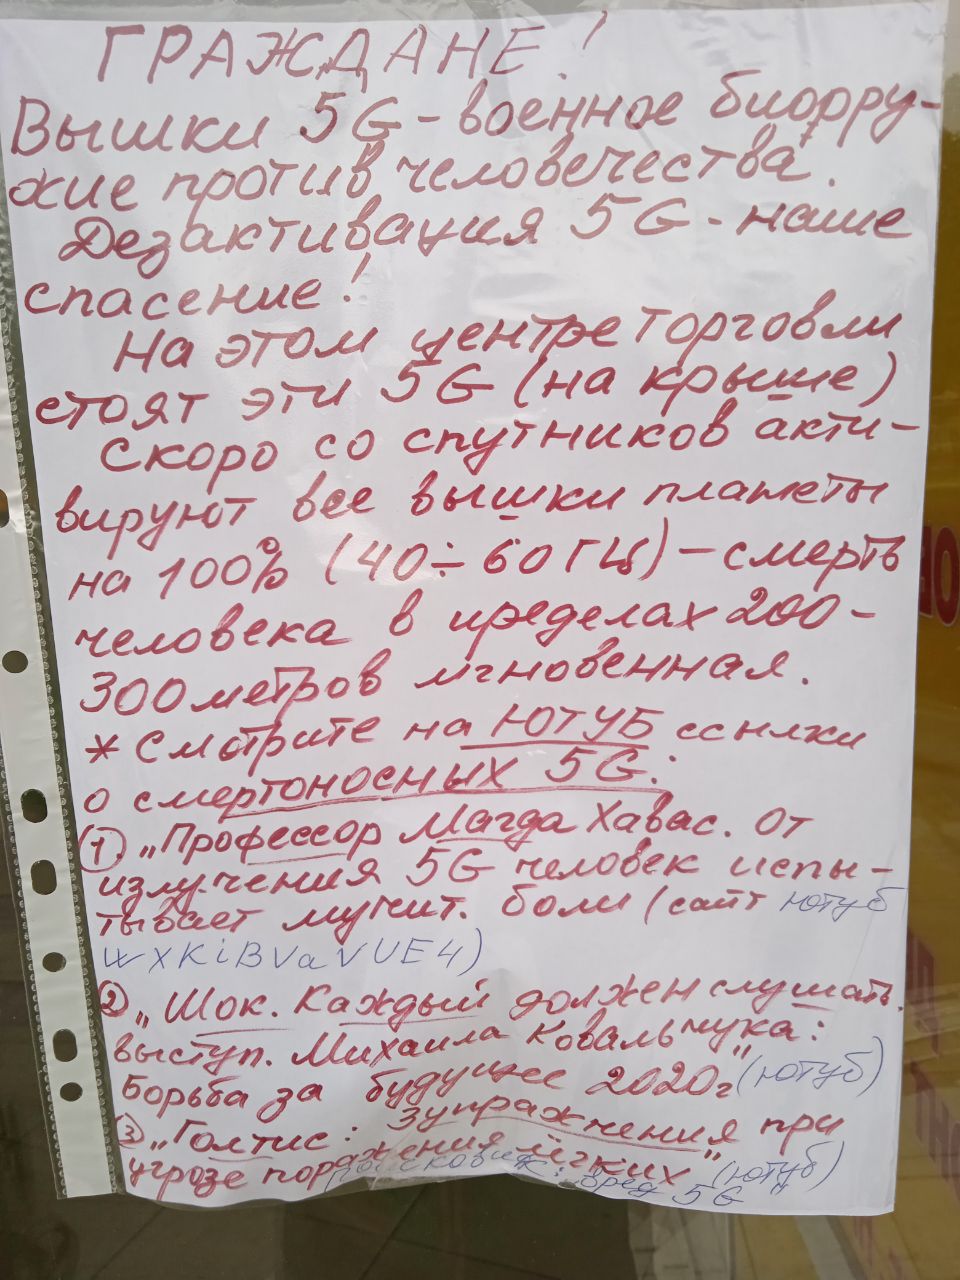 ГРАЖДАНЕ!
Вышки 5G - военное биоору-
жие против человечества.
Дезактивация 5G - наше
спасение!
На этом центре торговли
стоят эти 5G (на крыше)
Скоро со спутников акти-
вируют все вышки планеты
на 100% (40÷60ГЦ) - смерть
человека в пределах 200-
300 метров мгновенная.
* Смотрите на ЮТУБ ссылки
о смертоносных 5G:
1. „Профессор Магда Хавас. От
излучения 5G человек испы-
тывает мучит. боли (сайт ютуб
WXKiBVaVUE4)
2 „Шок. Каждый должен слушать.
выступ. Михаила Ковальчука:
Борьба за будущее 2020г" (ютуб)
3 „Голтис: 3 упражнения при
угрозе поражения лёгких" (ютуб)
вред 5G"